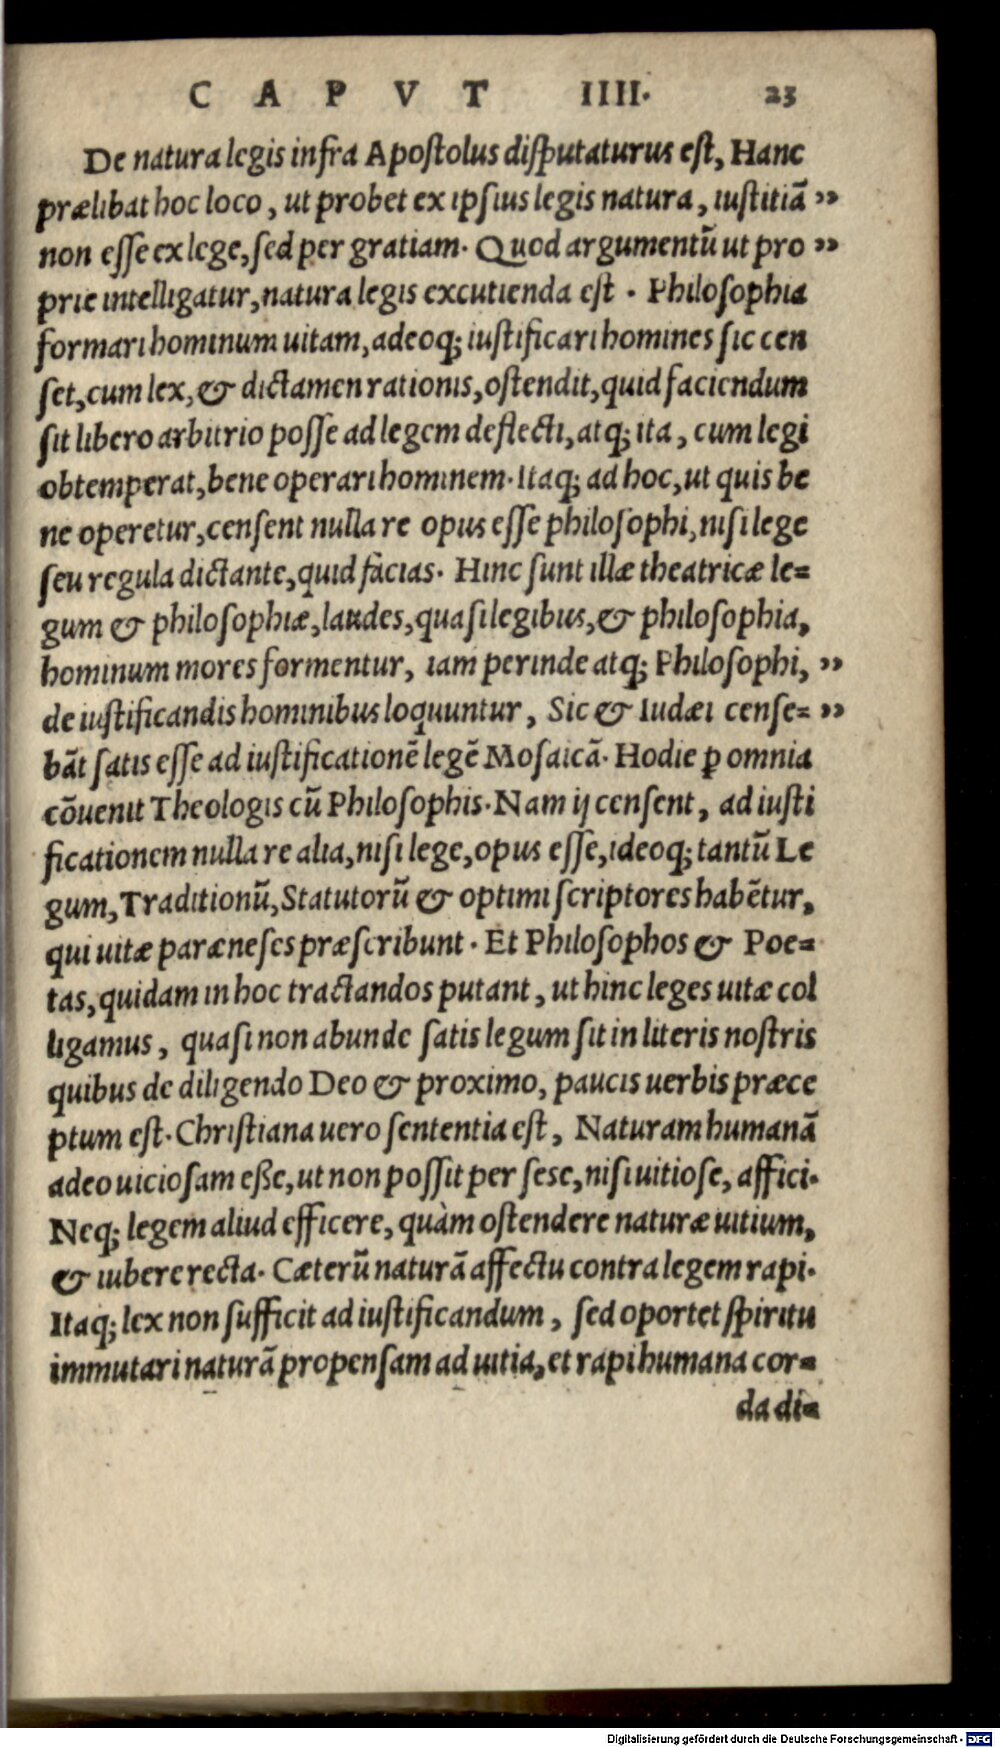 CAPVT IIII. 23
De natura legis infra Apostolus disputaturus est, Hanc
prælibat hoc loco, ut probet ex ipsius legis natura, iustitiã ”
non esse ex lege, sed per gratiam. Quod argumentũ ut pro ”
prie intelligatur, natura legis excutienda est. Philosophia
formari hominum uitam, adeoq; iustificari homines sic cen
set, cum lex, & dictamen rationis, ostendit, quid faciendum
sit libero arbitrio posse ad legem deflecti, atq; ita, cum legi
obtemperat, bene operari hominem. Itaq; ad hoc, ut quis be
ne operetur, censent nulla re opus esse philosophi, nisi lege
seu regula dictante, quid facias. Hinc sunt illæ theatricæ le=
gum & philosophiæ, laudes, quasi legibus, & philosophia,
hominum mores formentur, iam perinde atq; Philosophi, ”
de iustificandis hominibus loquuntur, Sic & Iudæi cense= ”
bãt satis esse ad iustificationẽ legẽ Mosaicã. Hodie ꝑ omnia
cõuenit Theologis cũ Philosophis. Nam ij censent, ad iusti
ficationem nulla re alia, nisi lege, opus esse, ideoq; tantũ Le
gum, Traditionũ, Statutorũ & optimi scriptores habẽtur,
qui uitæ paræneses præscribunt. Et Philosophos & Poe=
tas, quidam in hoc tractandos putant, ut hinc leges uitæ col
ligamus, quasi non abunde satis legum sit in literis nostris
quibus de diligendo Deo & proximo, paucis uerbis præce
ptum est. Christiana uero sententia est, Naturam humanã
adeo uiciosam eße, ut non possit per sese, nisi uitiose, affici.
Neq; legem aliud efficere, quàm ostendere naturæ uitium,
& iubere recta. Cæterũ naturã affectu contra legem rapi.
Itaq; lex non sufficit ad iustificandum, sed oportet spiritu
immutari naturã propensam ad uitia, et rapi humana cor=
da di=
Digitalisierung gefördert durch die Deutsche Forschungsgemeinschaft - DFG